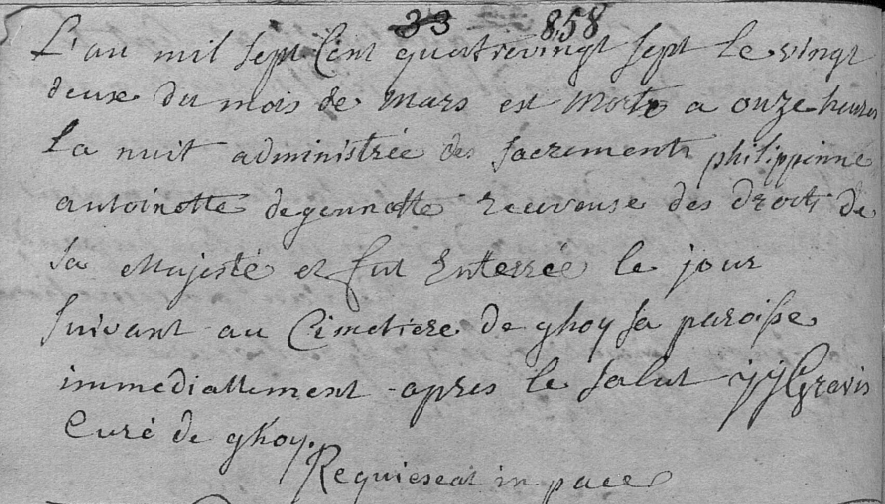 33 858
L'an mil sept Cent quatrevingt sept le vingt
deux du mois de Mars est Morte a onze heures
La nuit administrée des sacrements philippinne
antoinette degennotte receveuse des droits de
sa Majesté et fut Enterrée le jour
suivant au Cimetiere de ghoy sa paroisse
immediattement apres le salut JJ Gravis
Curé de ghoy.
Requiescat in pace